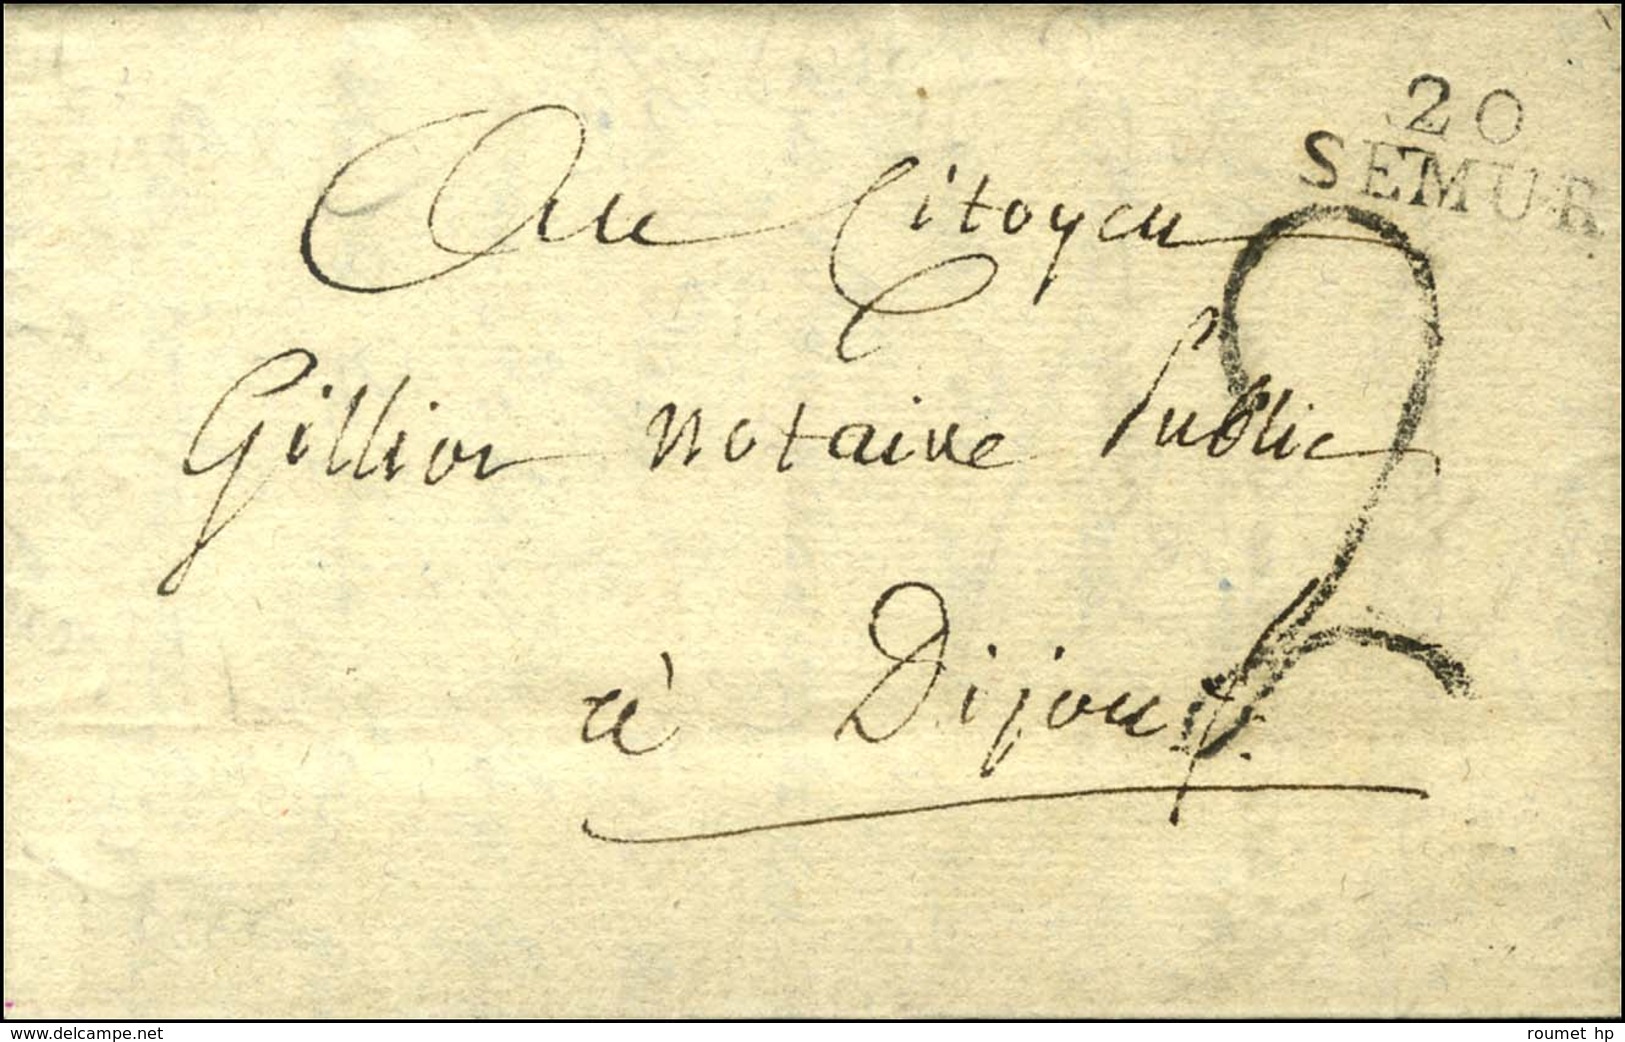 20
SEMUR
Au Citoyen
Gillior notaire Public
à Dijon
2
www.delcampe.net
roumet hp